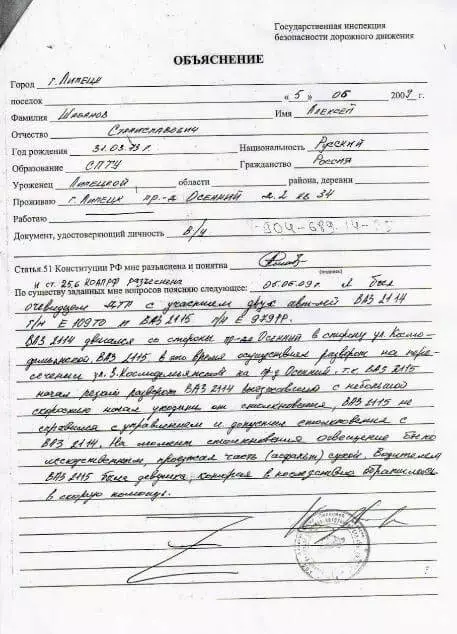 Государственная инспекция
безопасности дорожного движения
ОБЪЯСНЕНИЕ
Город г. Липецк
поселок «5» 06 2009 г.
Фамилия Шабанов Имя Алексей
Отчество Станиславович
Год рождения 31.03.73 г. Национальность Русский
Образование СПТУ Гражданство Россия
Уроженец Липецкой области района, деревни
Проживаю г. Липецк пр-д Осенний д. 2 кв 34
Работаю
Документ, удостоверяющий личность в/у
Статья 51 Конституции РФ мне разъяснена и понятна
и ст. 25.6 КОАП РФ разъяснена
По существу заданных мне вопросов поясняю следующее: 05.06.09г. Я был
очевидцем ДТП с участием двух авт-лей ВАЗ 2114
г/н Е 109ТО и ВАЗ 2115 г/н Е
ВАЗ 2114 двигался со стороны пр-да Осенний в сторону ул. Космо-
демьянской. ВАЗ 2115 в это время осуществлял разворот на пере-
сечении ул. З. Космодемьянской и пр-д Осенний. т.к. ВАЗ 2115
начал резкий разворот ВАЗ 2114 с небольшой
скоростью начал уходить от столкновения, ВАЗ 2115 не
справился с управлением и допустил столкновение с
ВАЗ 2114. На момент столкновения освещение было
искусственным, проезжая часть (асфальт) сухой. Водителем
ВАЗ 2115 была девушка, которая в последствие обратилась
в скорую помощь.